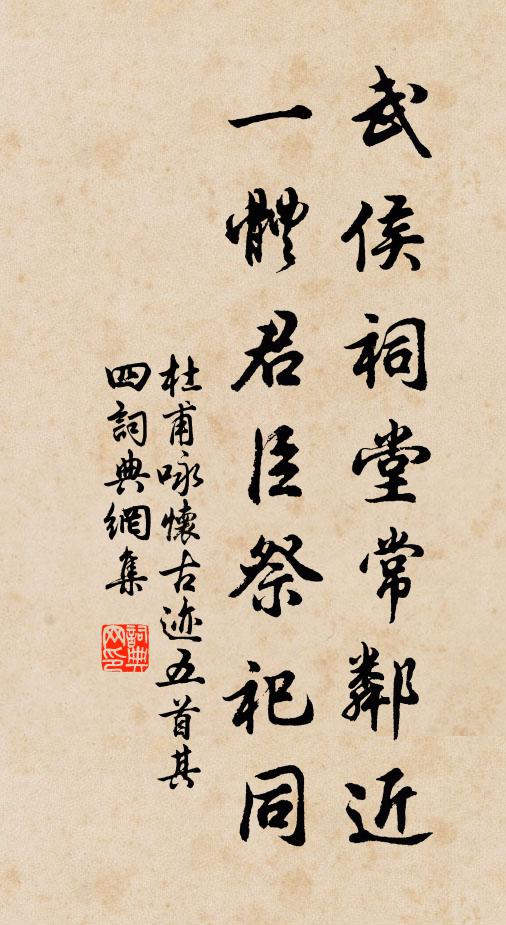 武侯祠堂常鄰近
一體君臣祭祀同
杜甫詠懷古迹五首其
四詞典網集
詞典
网印